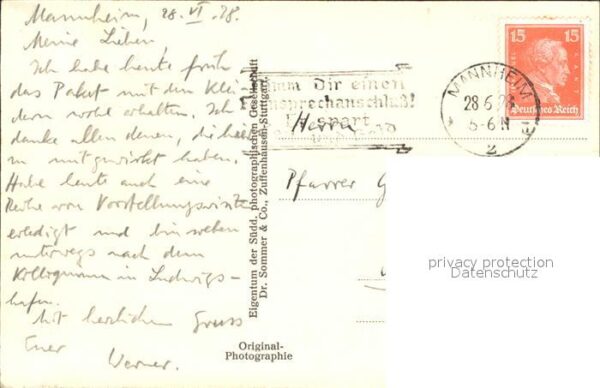 Mannheim, 28. VI. 28.
Meine Lieben,
Ich habe heute früh
das Paket mit den Klei-
dern wohl erhalten. Ich
danke allen denen, die
mitgewirkt haben.
Habe heute auch eine
Reihe von Vorstellungsvisiten
erledigt und bin soeben
unterwegs nach dem
Kolloquium in Ludwigs-
hafen.
Mit herzlichem Gruss
Euer Werner.
Eigentum der Südd. photographischen Gesellschaft
Dr. Sommer & Co., Zuffenhausen-Stuttgart.
Original-
Photographie
Nimm Dir einen
Fernsprechanschluß!
Er spart
MANNHEIM
28.6.28
5-6 N
2
15 15
KANT
Deutsches Reich
Herrn
Pfarrer G
privacy protection
Datenschutz